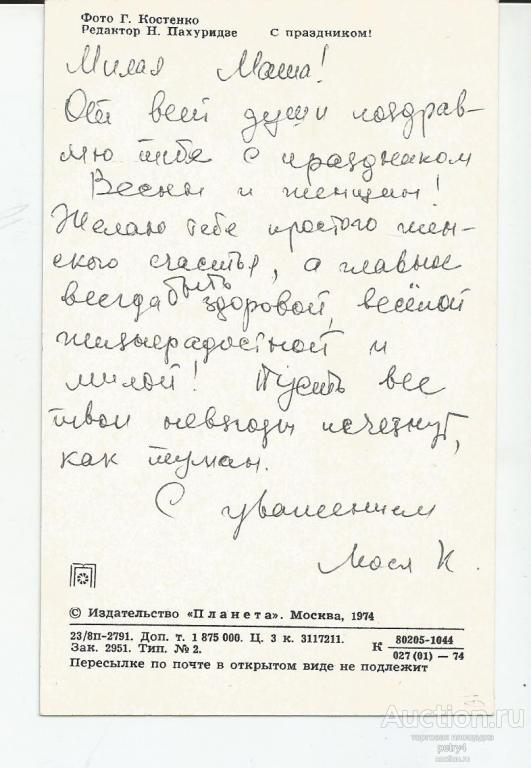 Фото Г. Костенко
Редактор Н. Пахуридзе С праздником!
Милая Маша!
От всей души поздрав-
лю тебе с праздником
Весны и женщин!
Желаю тебе простого жен-
ского счастья, а главное
всегда быть здоровой, весёлой
жизнерадостной и
милой! Пусть все
твои невзгоды исчезнут,
как туман.
С уважением
Мося К.
© Издательство «Планета». Москва, 1974
23/8п-2791. Доп. т. 1 875 000. Ц. 3 к. 3117211.
Зак. 2951. Тип. № 2.
К 80205-1044
027 (01) — 74
Пересылке по почте в открытом виде не подлежит
Auction.ru
торговая площадка
petry4
auction.ru